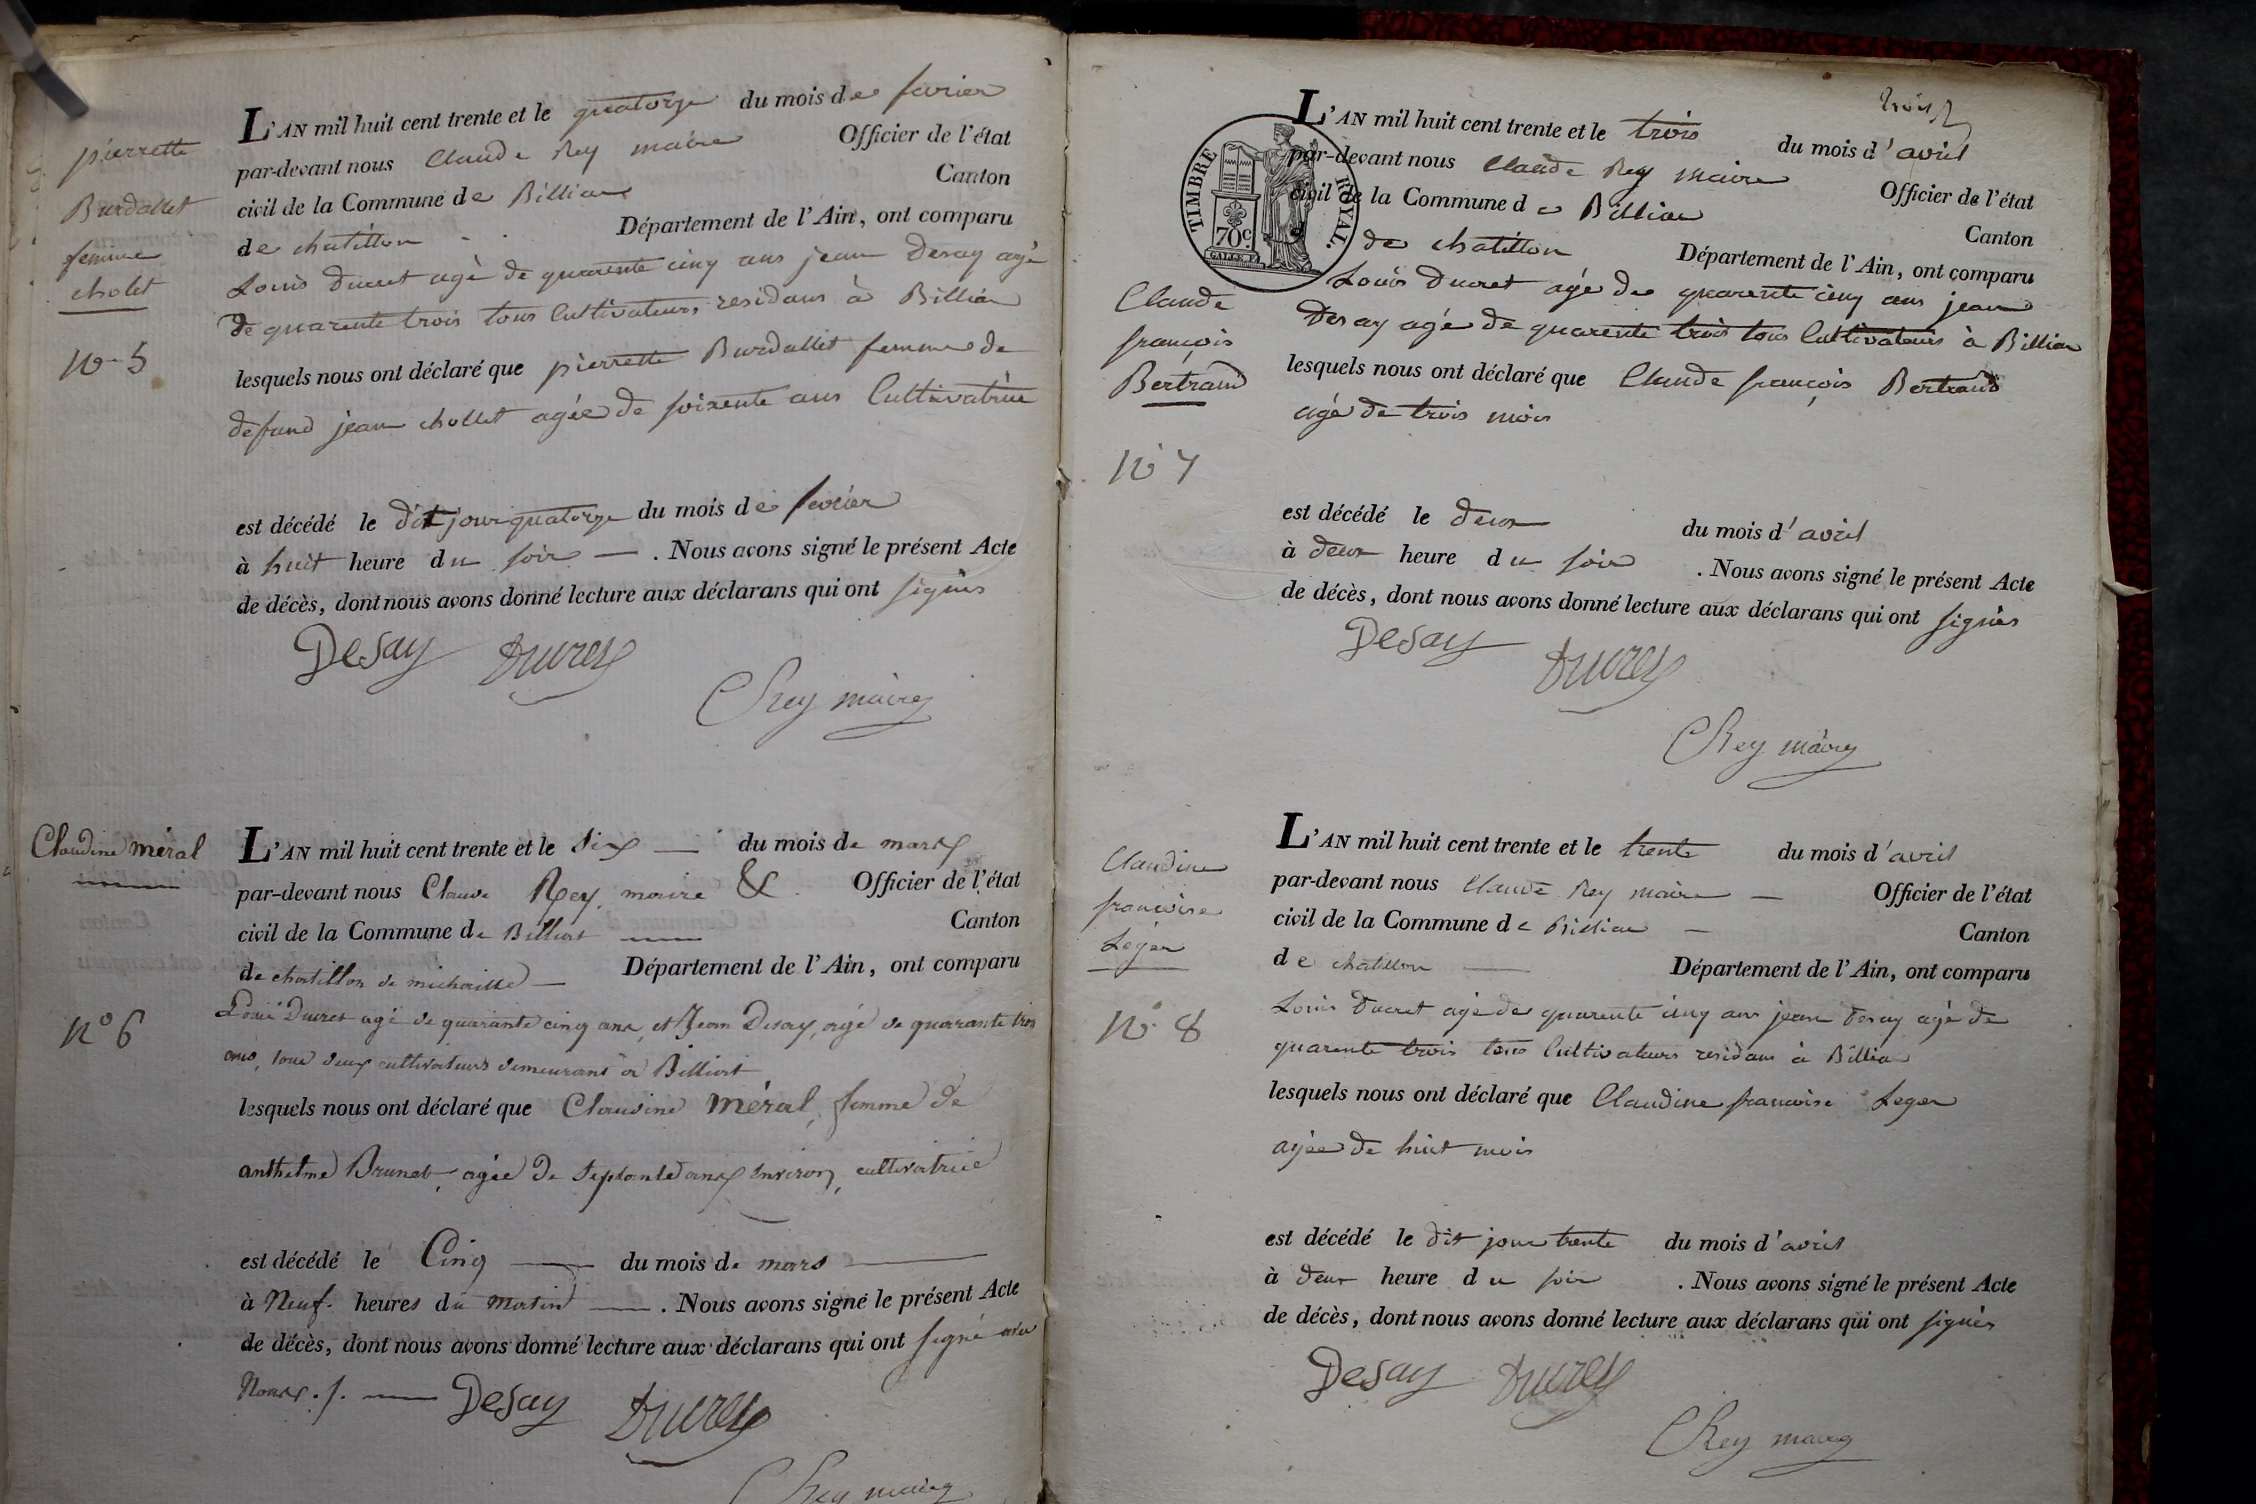 pierrette
Burdallet
femme
cholet
N° 5
L'AN mil huit cent trente et le quatorze du mois de fevrier
par-devant nous Claude Rey maire Officier de l'état
civil de la Commune de Billiau Canton
de chatillon Département de l'Ain, ont comparu
Louis Ducret agé de quarente cinq ans jean Desay agé
de quarente trois tous Cultivateurs residans à Billiau
lesquels nous ont déclaré que pierrette Burdallet femme de
defund jean chollet agée de soixente ans Cultivatrice
est décédé le dit jour quatorze du mois de fevrier
à huit heure du soir — . Nous avons signé le présent Acte
de décès, dont nous avons donné lecture aux déclarans qui ont signés
Desay Ducret
C Rey maire
Claudine méral
N° 6
L'AN mil huit cent trente et le Six — du mois de mars
par-devant nous Claude Rey, maire & Officier de l'état
civil de la Commune de Billiat — Canton
de chatillon de michaille — Département de l'Ain, ont comparu
Louis Ducret agé de quarante cinq ans, et Jean Desay, agé de quarante trois
ans, tous deux cultivateurs demeurant à Billiat
lesquels nous ont déclaré que Claudine méral, femme de
anthelme Brunet, agée de Septante ans environ, cultivatrice
est décédé le Cinq — du mois de mars —
à Neuf heures du matin — . Nous avons signé le présent Acte
de décès, dont nous avons donné lecture aux déclarans qui ont signé avec
Nous. —
Desay Ducret
C Rey maire
TIMBRE ROYAL.
70c.
trois
Claude
françois
Bertrand
N° 7
L'AN mil huit cent trente et le trois du mois d'avril
par-devant nous Claude Rey maire Officier de l'état
civil de la Commune de Billiau Canton
de chatillon Département de l'Ain, ont comparu
Louis Ducret agé de quarente cinq ans jean
Desay agé de quarente trois tous Cultivateurs à Billiau
lesquels nous ont déclaré que Claude françois Bertrand
agé de trois mois
est décédé le deux du mois d'avril
à deux heure du soir . Nous avons signé le présent Acte
de décès, dont nous avons donné lecture aux déclarans qui ont signés
Desay Ducret
C Rey maire
Claudine
francoise
Leger
N° 8
L'AN mil huit cent trente et le trente du mois d'avril
par-devant nous Claude Rey maire — Officier de l'état
civil de la Commune de Billiau — Canton
de chatillon — Département de l'Ain, ont comparu
Louis Ducret agé de quarente cinq ans jean Desay agé de
quarente trois tous Cultivateurs residans à Billiau
lesquels nous ont déclaré que Claudine francoise Leger
agée de huit mois
est décédé le dit jour trente du mois d'avril
à deux heure du soir . Nous avons signé le présent Acte
de décès, dont nous avons donné lecture aux déclarans qui ont signés
Desay Ducret
C Rey maire